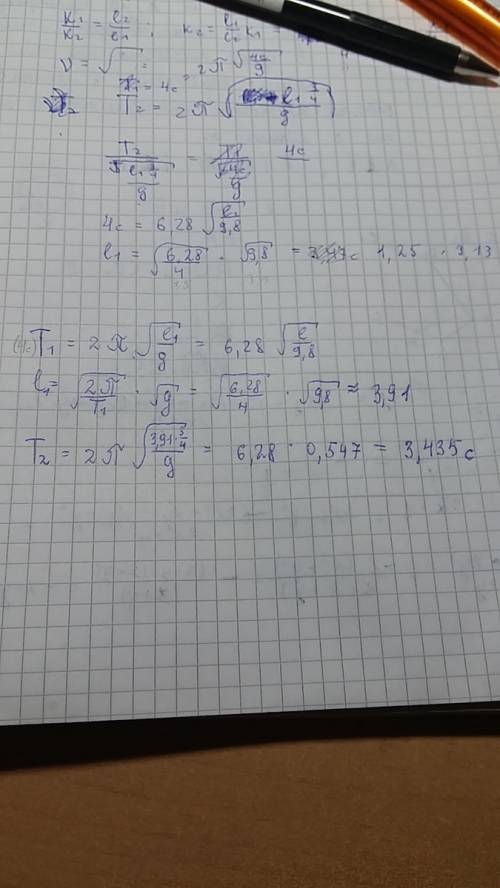 K₁/K₂ = l₂/l₁ ; K₂ = l₁/l₂ K₁ =
ν = √ = 2π √(4c/g)
T₁ = 4c
T₂ = 2π √(l₁ 3/4 / g)
T₂ / √(l₁ 3/4 / g) = 4c
4c = 6,28 √(l₁/9,8)
l₁ = √(6,28/4) · √9,8 = 1,25 · 3,13
(4c) T₁ = 2π √(l₁/g) = 6,28 √(l/9,8)
l₁ = √(2π/T₁) · √g = √(6,28/4) · √9,8 ≈ 3,91
T₂ = 2π √(3,91·3/4 / g) = 6,28 · 0,547 = 3,435 c